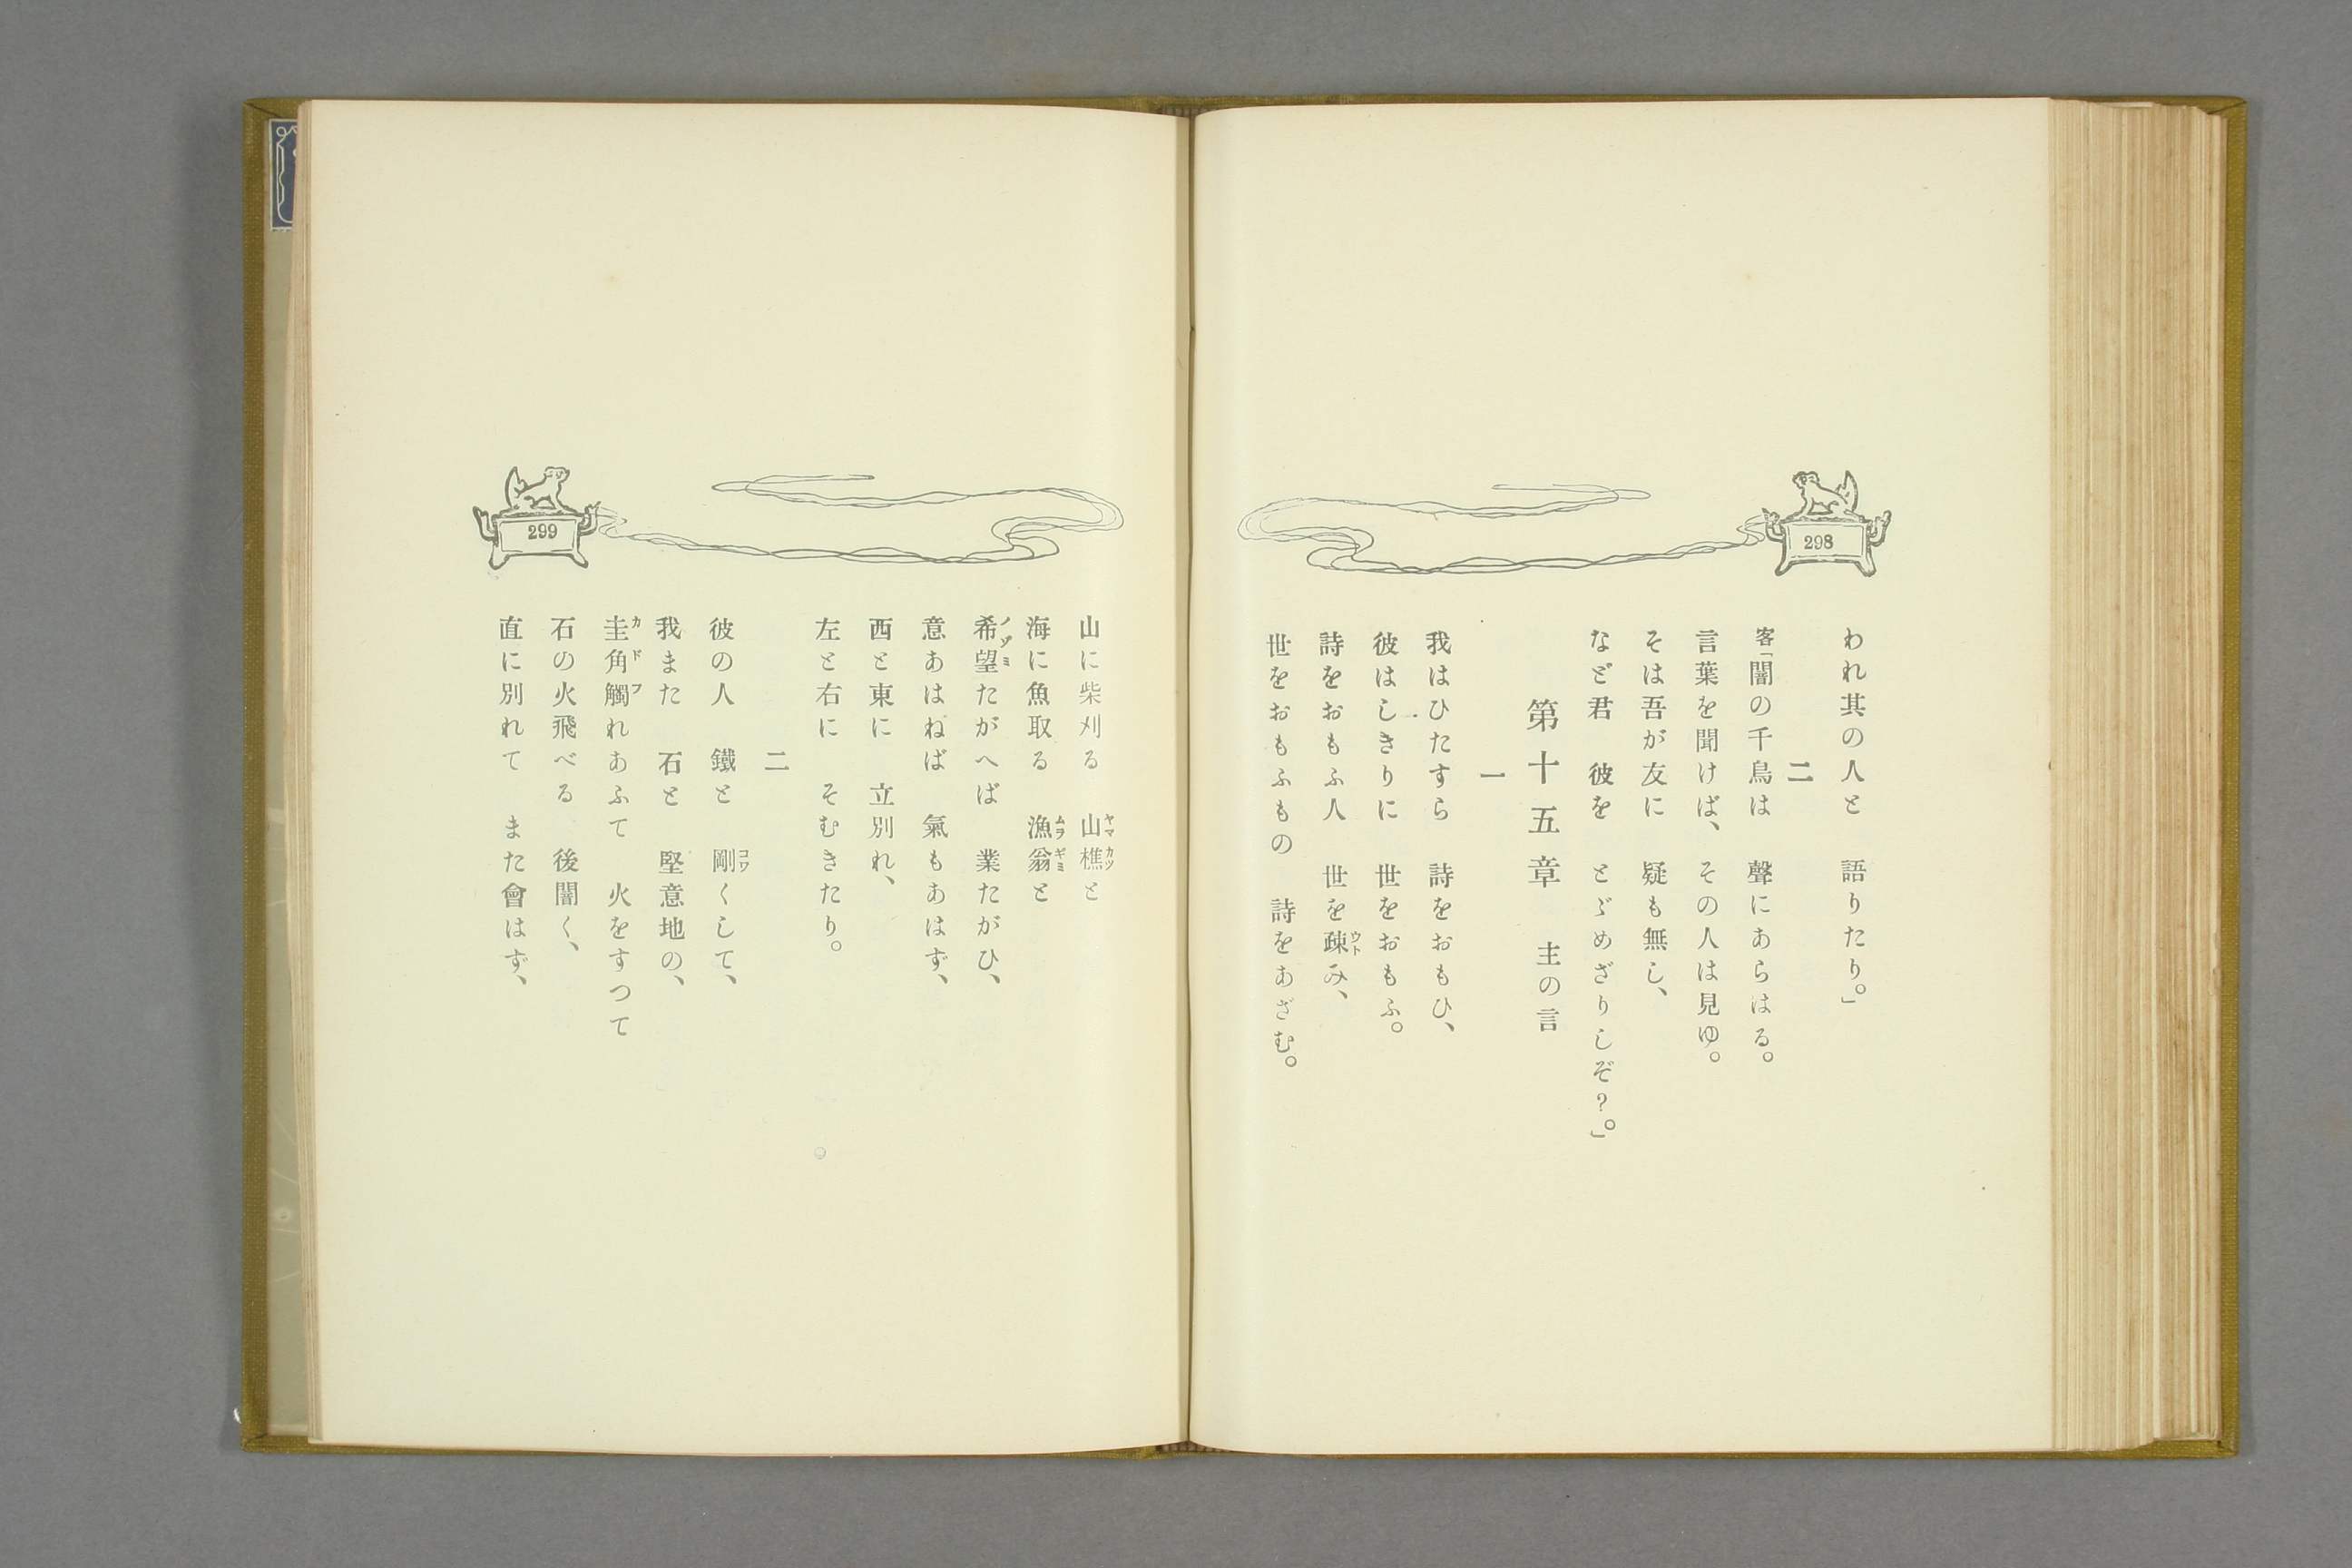 298
われ其の人と　語りたり。」
二
客「闇の千鳥は　聲にあらはる。
言葉を聞けば、その人は見ゆ。
そは吾が友に　疑も無し、
など君　彼を　とゞめざりしぞ?。」
第十五章　主の言
一
我はひたすら　詩をおもひ、
彼はしきりに　世をおもふ。
詩をおもふ人　世を疎み、
世をおもふもの　詩をあざむ。
299
山に柴刈る　山樵と
海に魚取る　漁翁と
希望たがへば　業たがひ、
意あはねば　氣もあはず、
西と東に　立別れ、
左と右に　そむきたり。
二
彼の人　鐵と　剛くして、
我また　石と　堅意地の、
圭角觸れあふて　火をすつて
石の火飛べる　後闇く、
直に別れて　また會はず、